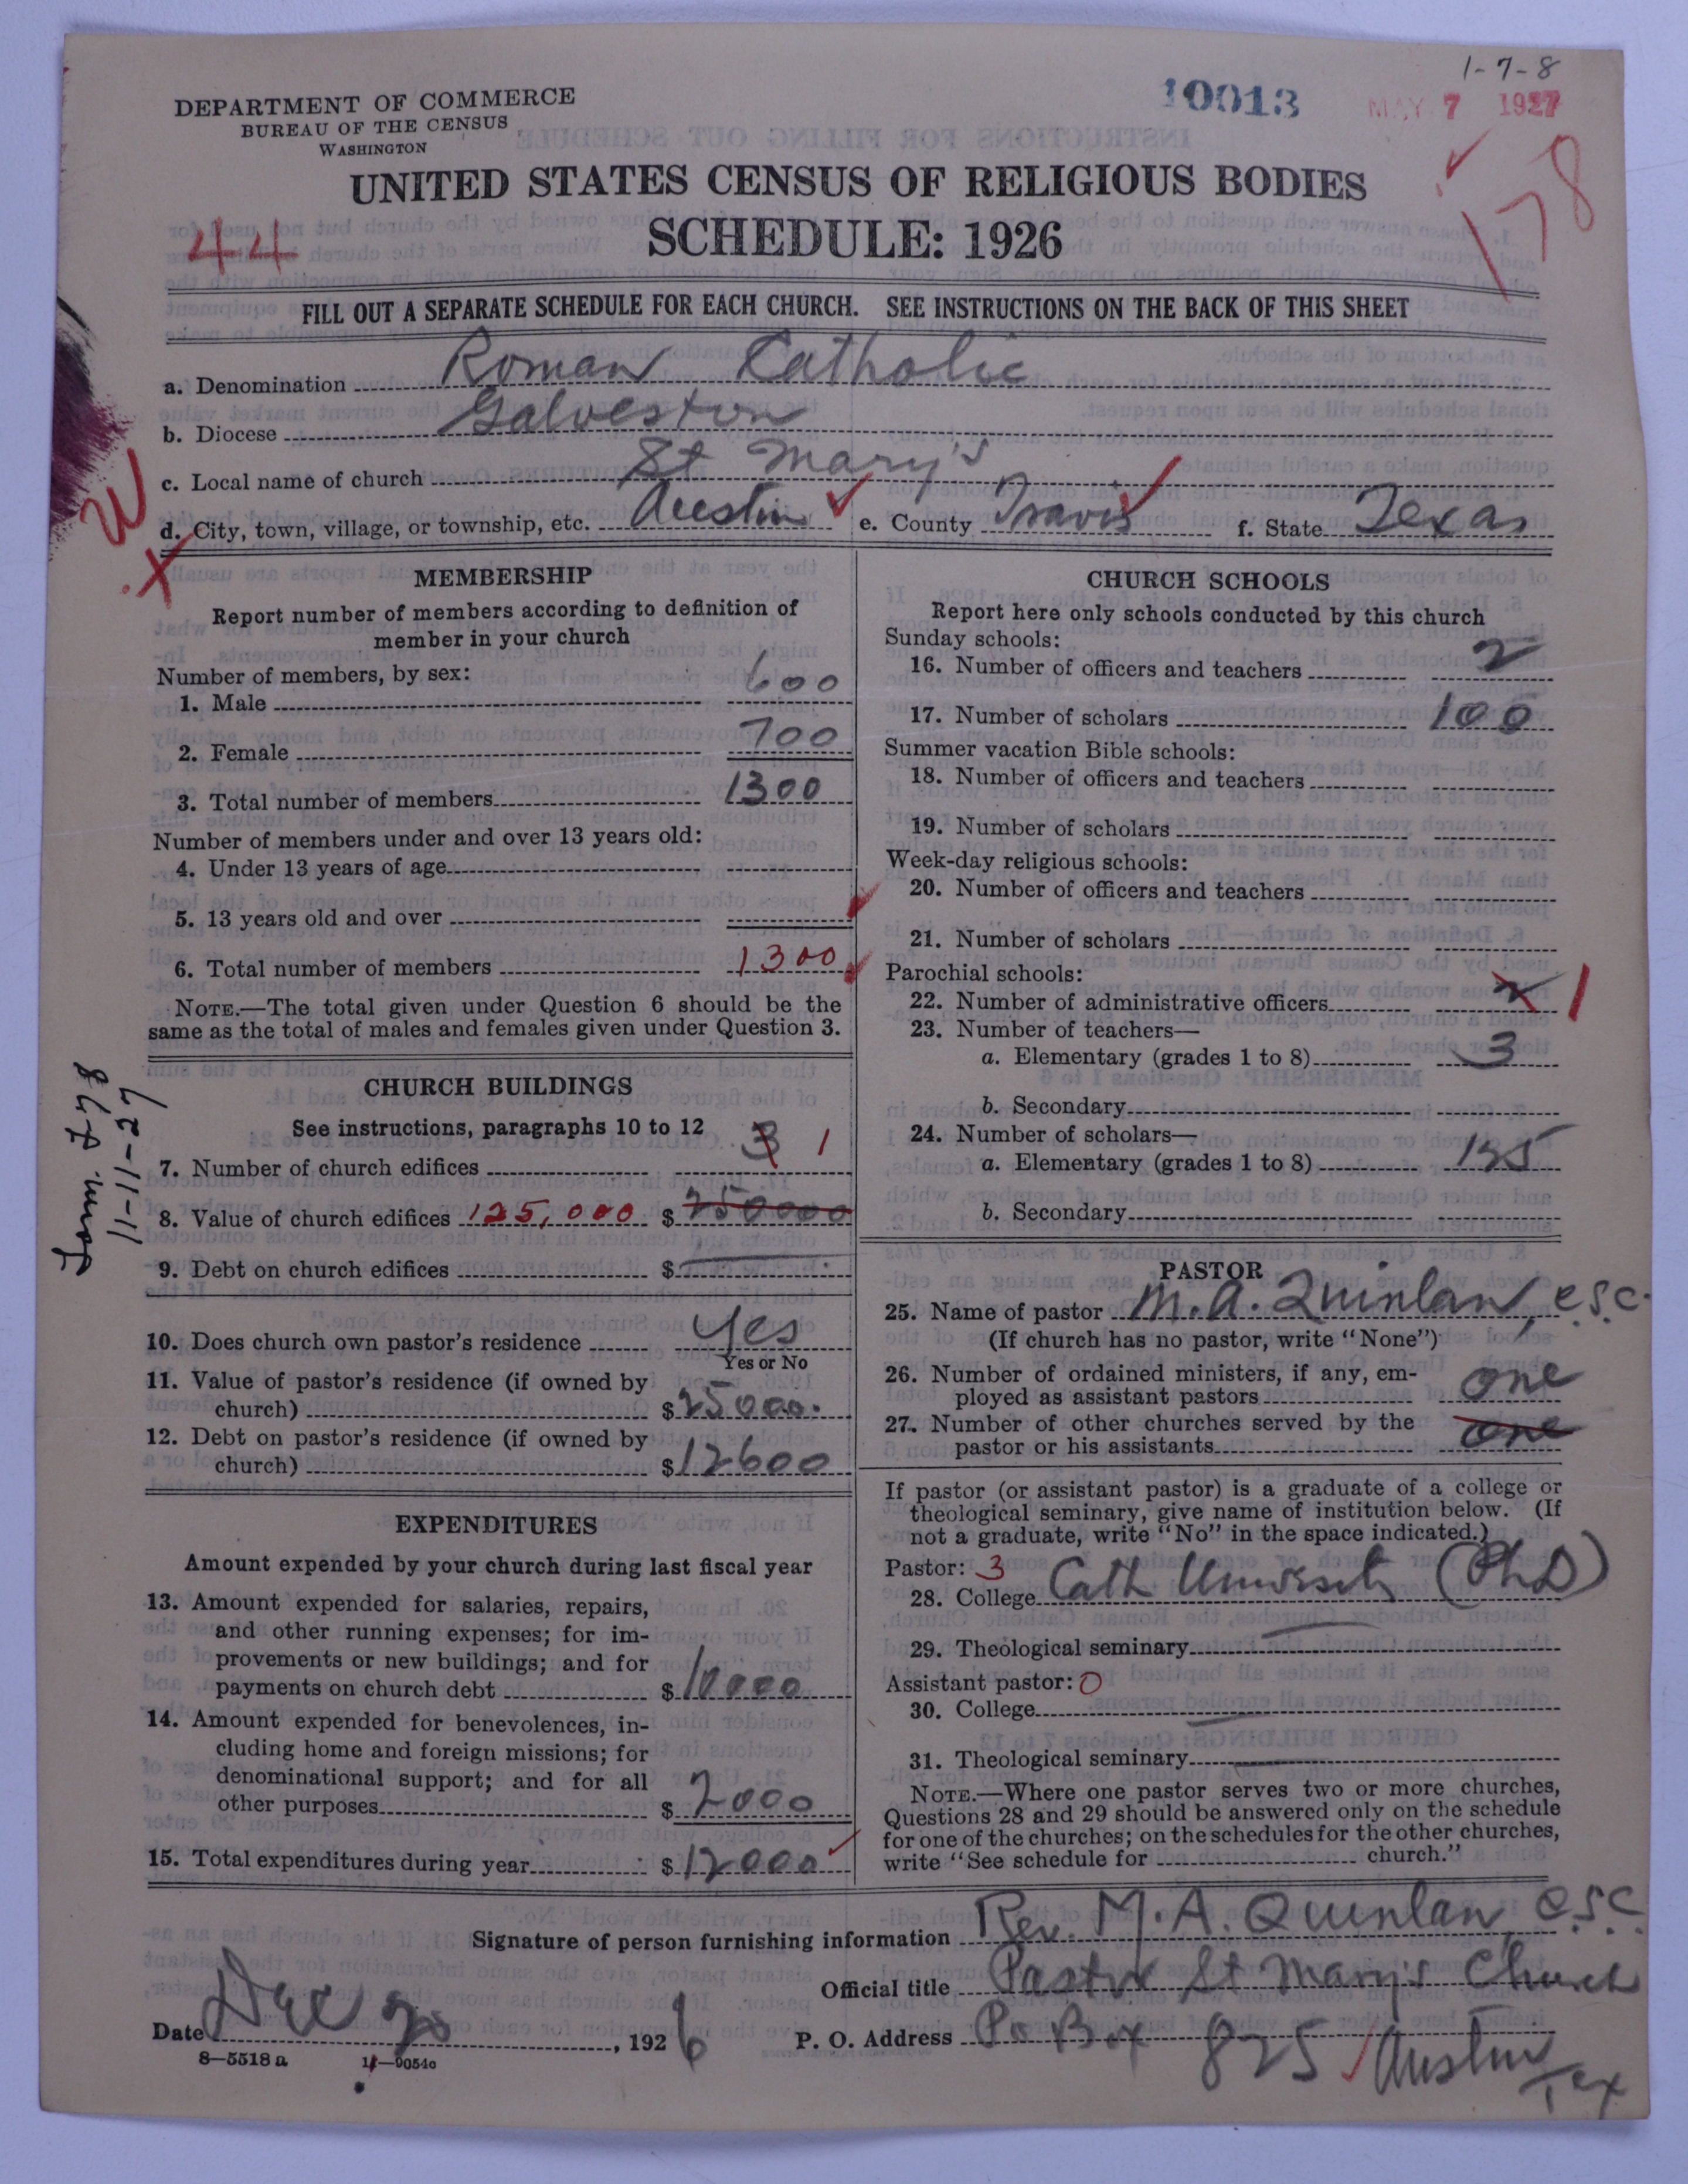 1-7-8
DEPARTMENT OF COMMERCE
BUREAU OF THE CENSUS
WASHINGTON
10013
MAY 7 1927
178
UNITED STATES CENSUS OF RELIGIOUS BODIES
44
SCHEDULE: 1926
FILL OUT A SEPARATE SCHEDULE FOR EACH CHURCH. SEE INSTRUCTIONS ON THE BACK OF THIS SHEET
a. Denomination Roman Catholic
b. Diocese Galveston
c. Local name of church St Mary's
d. City, town, village, or township, etc. Austin e. County Travis f. State Texas
W
X
MEMBERSHIP
Report number of members according to definition of
member in your church
Number of members, by sex:
1. Male 600
2. Female 700
3. Total number of members 1300
Number of members under and over 13 years old:
4. Under 13 years of age
5. 13 years old and over
6. Total number of members 1300
NOTE.—The total given under Question 6 should be the
same as the total of males and females given under Question 3.
CHURCH BUILDINGS
See instructions, paragraphs 10 to 12
7. Number of church edifices 3 1
8. Value of church edifices 125,000 $ 250000
9. Debt on church edifices $
10. Does church own pastor's residence Yes
Yes or No
11. Value of pastor's residence (if owned by
church) $ 25000.
12. Debt on pastor's residence (if owned by
church) $ 12600
Form 478
11-11-27
EXPENDITURES
Amount expended by your church during last fiscal year
13. Amount expended for salaries, repairs,
and other running expenses; for im-
provements or new buildings; and for
payments on church debt $ 10000
14. Amount expended for benevolences, in-
cluding home and foreign missions; for
denominational support; and for all
other purposes $ 2000
15. Total expenditures during year $ 12000
CHURCH SCHOOLS
Report here only schools conducted by this church
Sunday schools:
16. Number of officers and teachers 2
17. Number of scholars 100
Summer vacation Bible schools:
18. Number of officers and teachers
19. Number of scholars
Week-day religious schools:
20. Number of officers and teachers
21. Number of scholars
Parochial schools:
22. Number of administrative officers 2 1
23. Number of teachers—
a. Elementary (grades 1 to 8) 3
b. Secondary
24. Number of scholars—
a. Elementary (grades 1 to 8) 125
b. Secondary
PASTOR
25. Name of pastor M. A. Quinlan, C.S.C.
(If church has no pastor, write "None")
26. Number of ordained ministers, if any, em-
ployed as assistant pastors one
27. Number of other churches served by the
pastor or his assistants one
If pastor (or assistant pastor) is a graduate of a college or
theological seminary, give name of institution below. (If
not a graduate, write "No" in the space indicated.)
Pastor: 3
28. College Cath University (PhD)
29. Theological seminary
Assistant pastor: 0
30. College
31. Theological seminary
NOTE.—Where one pastor serves two or more churches,
Questions 28 and 29 should be answered only on the schedule
for one of the churches; on the schedules for the other churches,
write "See schedule for church."
Signature of person furnishing information Rev. M. A. Quinlan, C.S.C.
Official title Pastor St Mary's Church
Date Dec 20, 1926 P. O. Address Po Box 825 Austin
Tex
8—5518 a 11—9054c